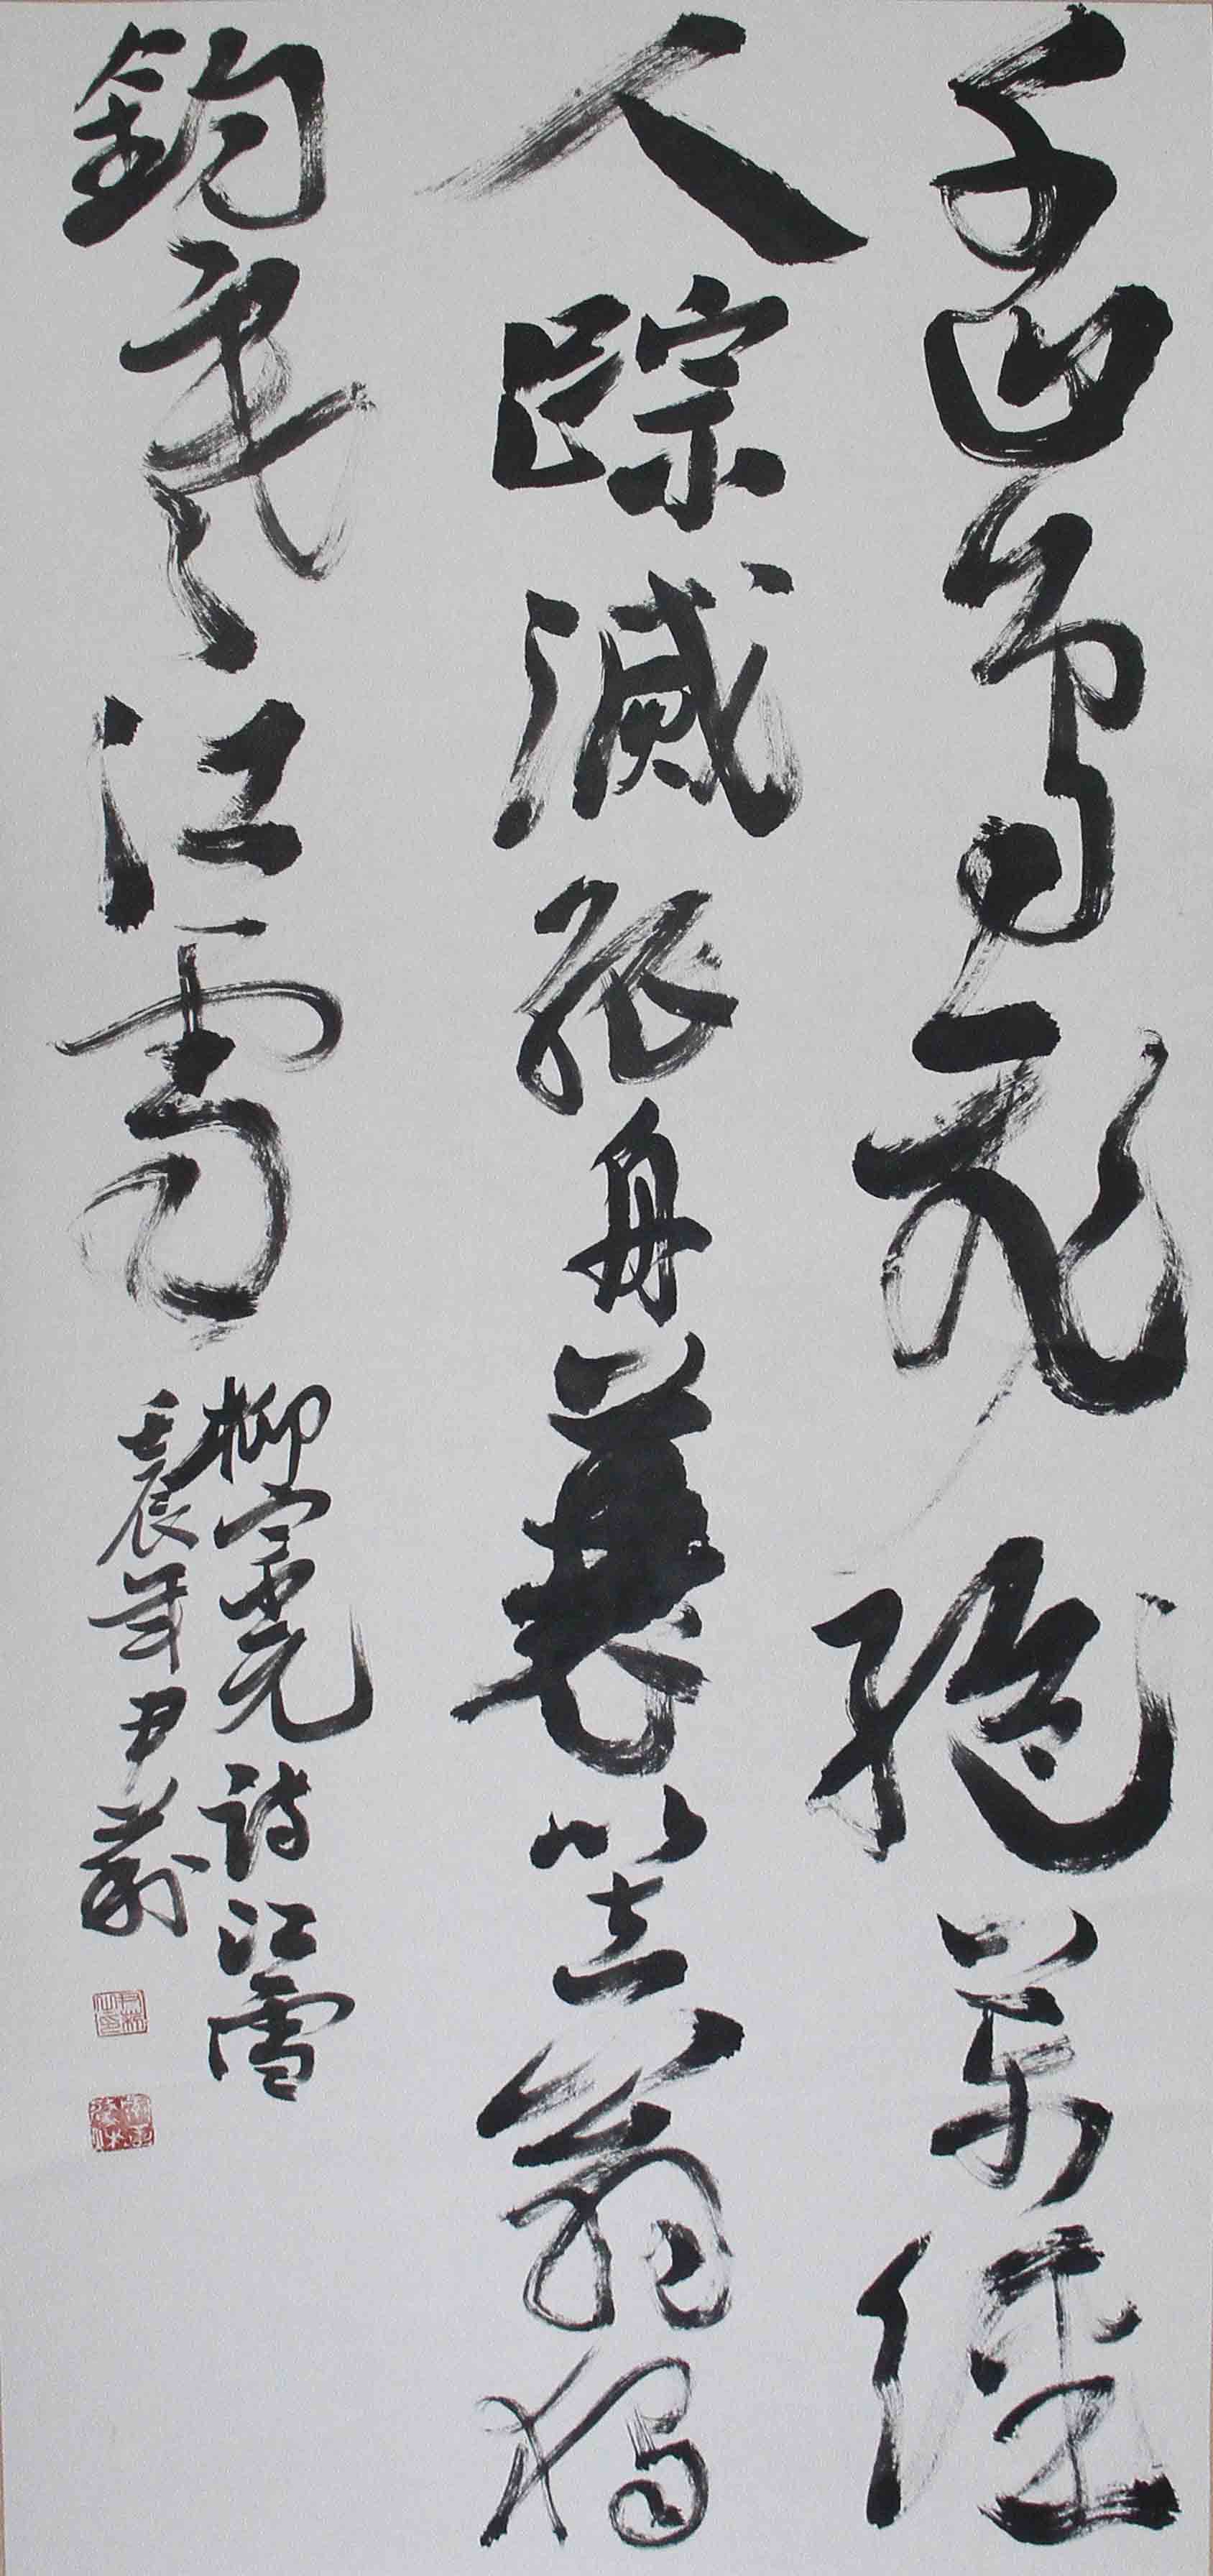 千山鸟飛絕萬徑
人踪滅孤舟蓑笠翁獨
钓寒江雪
柳宗元詩江雪
壬辰年尹